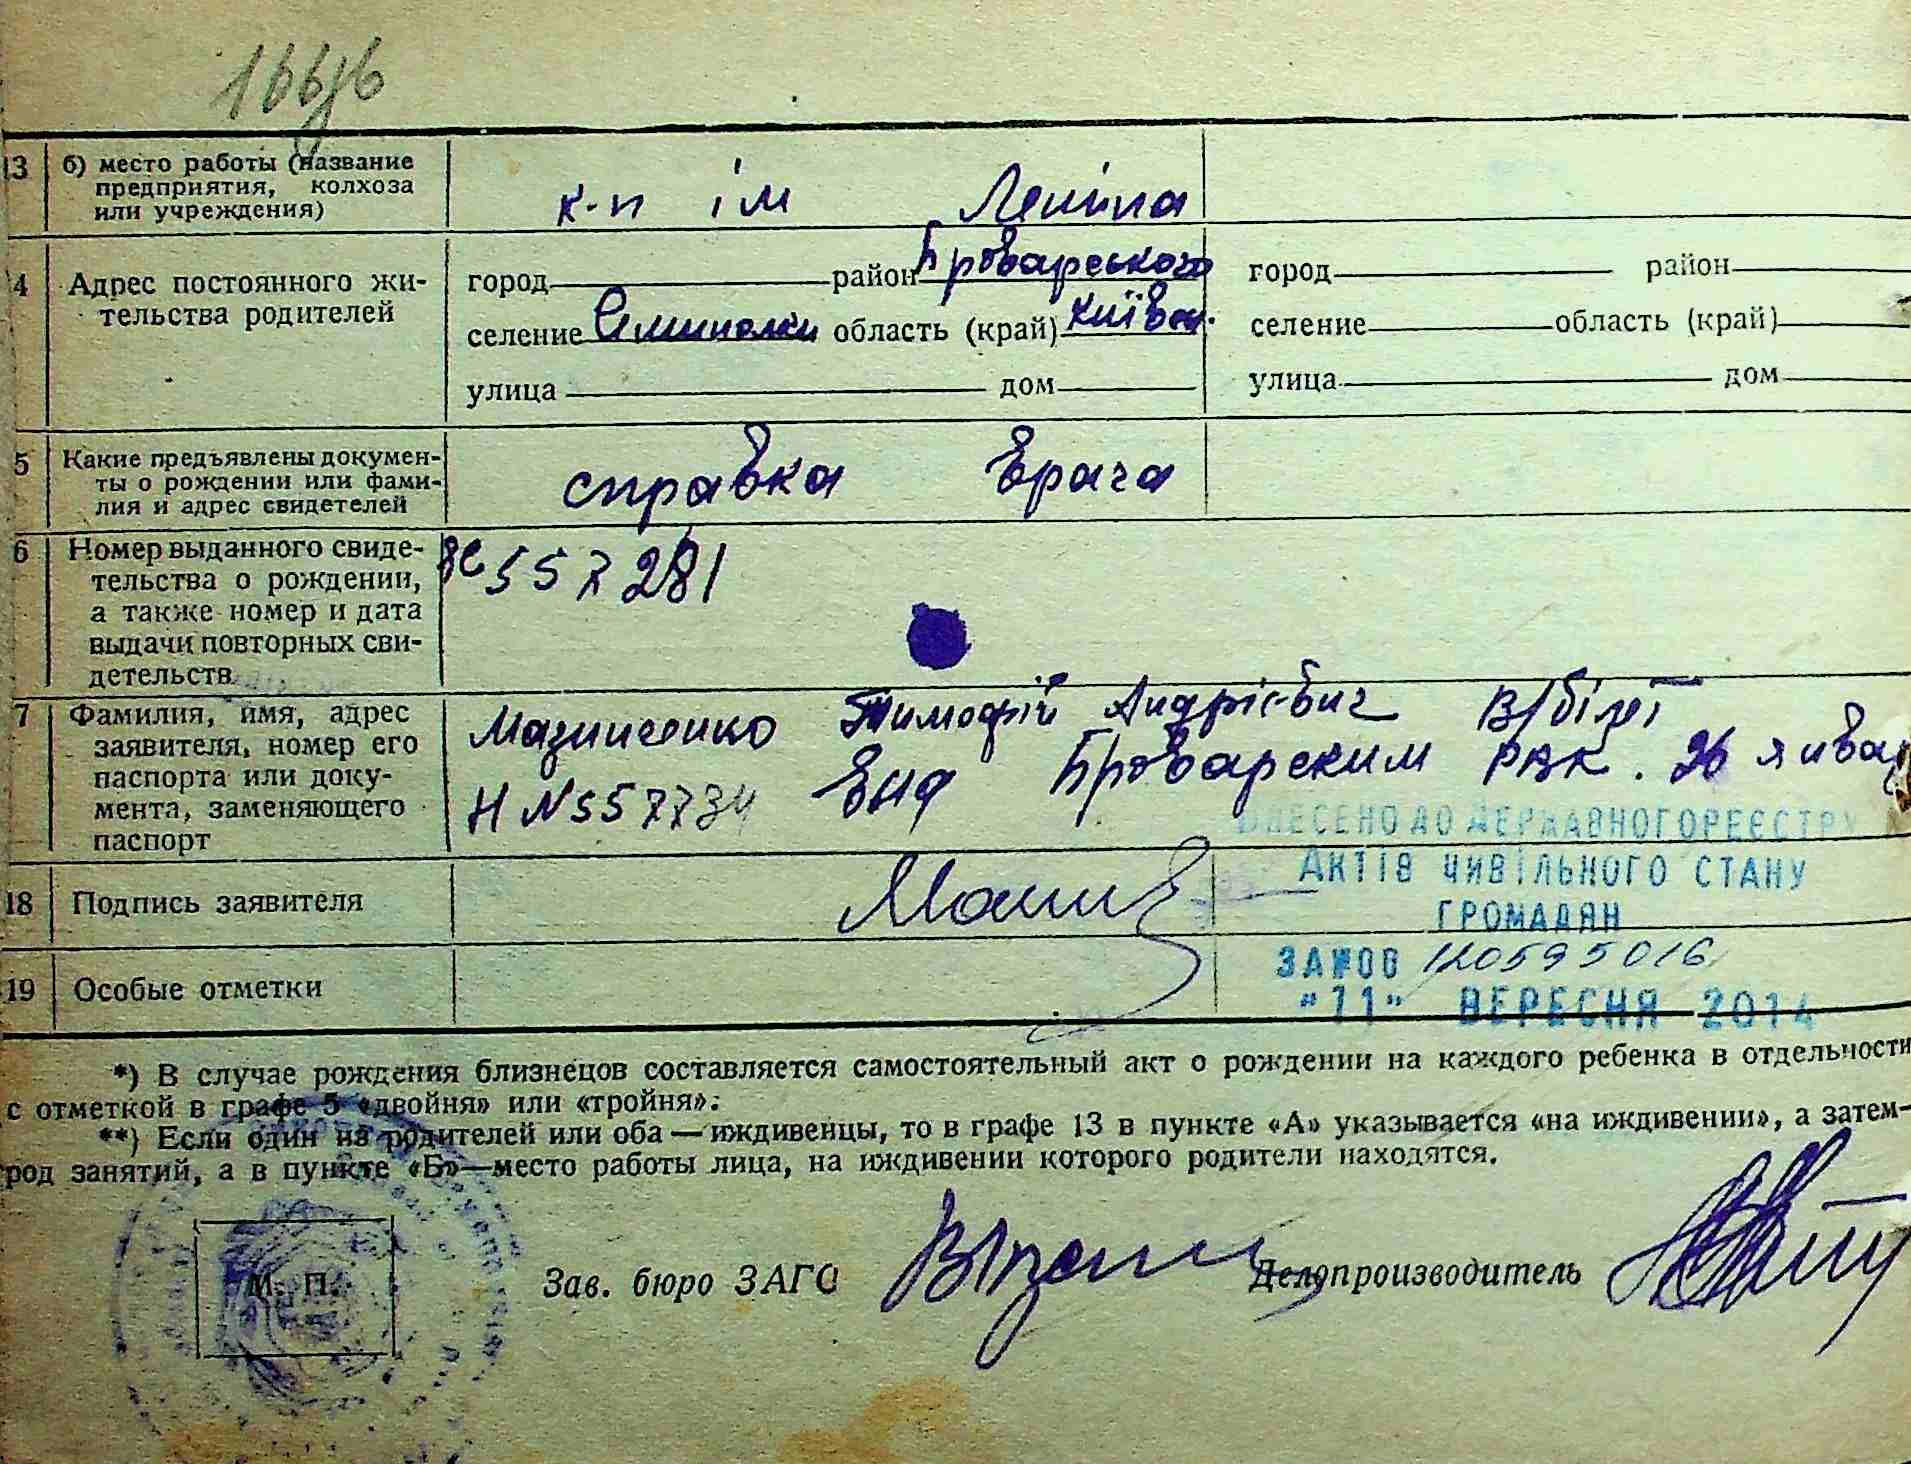 13 б) место работы (название
предприятия, колхоза
или учреждения)
к-п ім Леніна
4 Адрес постоянного жи-
тельства родителей
город район Броварського
селение Семиполки область (край) Київськ.
улица дом
город район
селение область (край)
улица дом
5 Какие предъявлены докумен-
ты о рождении или фами-
лия и адрес свидетелей
справка врача
6 Номер выданного свиде-
тельства о рождении,
а также номер и дата
выдачи повторных сви-
детельств
557281
7 Фамилия, имя, адрес
заявителя, номер его
паспорта или доку-
мента, заменяющего
паспорт
Тимофій Андрієвич В/білет
Н №557734 выд Броварским РВК. 26 январ
18 Подпись заявителя
19 Особые отметки
ВНЕСЕНО ДО ДЕРЖАВНОГО РЕЄСТРУ
АКТІВ ЦИВІЛЬНОГО СТАНУ
ГРОМАДЯН
ЗА №00 120595016
"11" ВЕРЕСНЯ 2014
*) В случае рождения близнецов составляется самостоятельный акт о рождении на каждого ребенка в отдельности
с отметкой в графе 5 «двойня» или «тройня».
**) Если один из родителей или оба — иждивенцы, то в графе 13 в пункте «А» указывается «на иждивении», а затем-
род занятий, а в пункте «Б»—место работы лица, на иждивении которого родители находятся.
М. П.
Зав. бюро ЗАГС Делопроизводитель